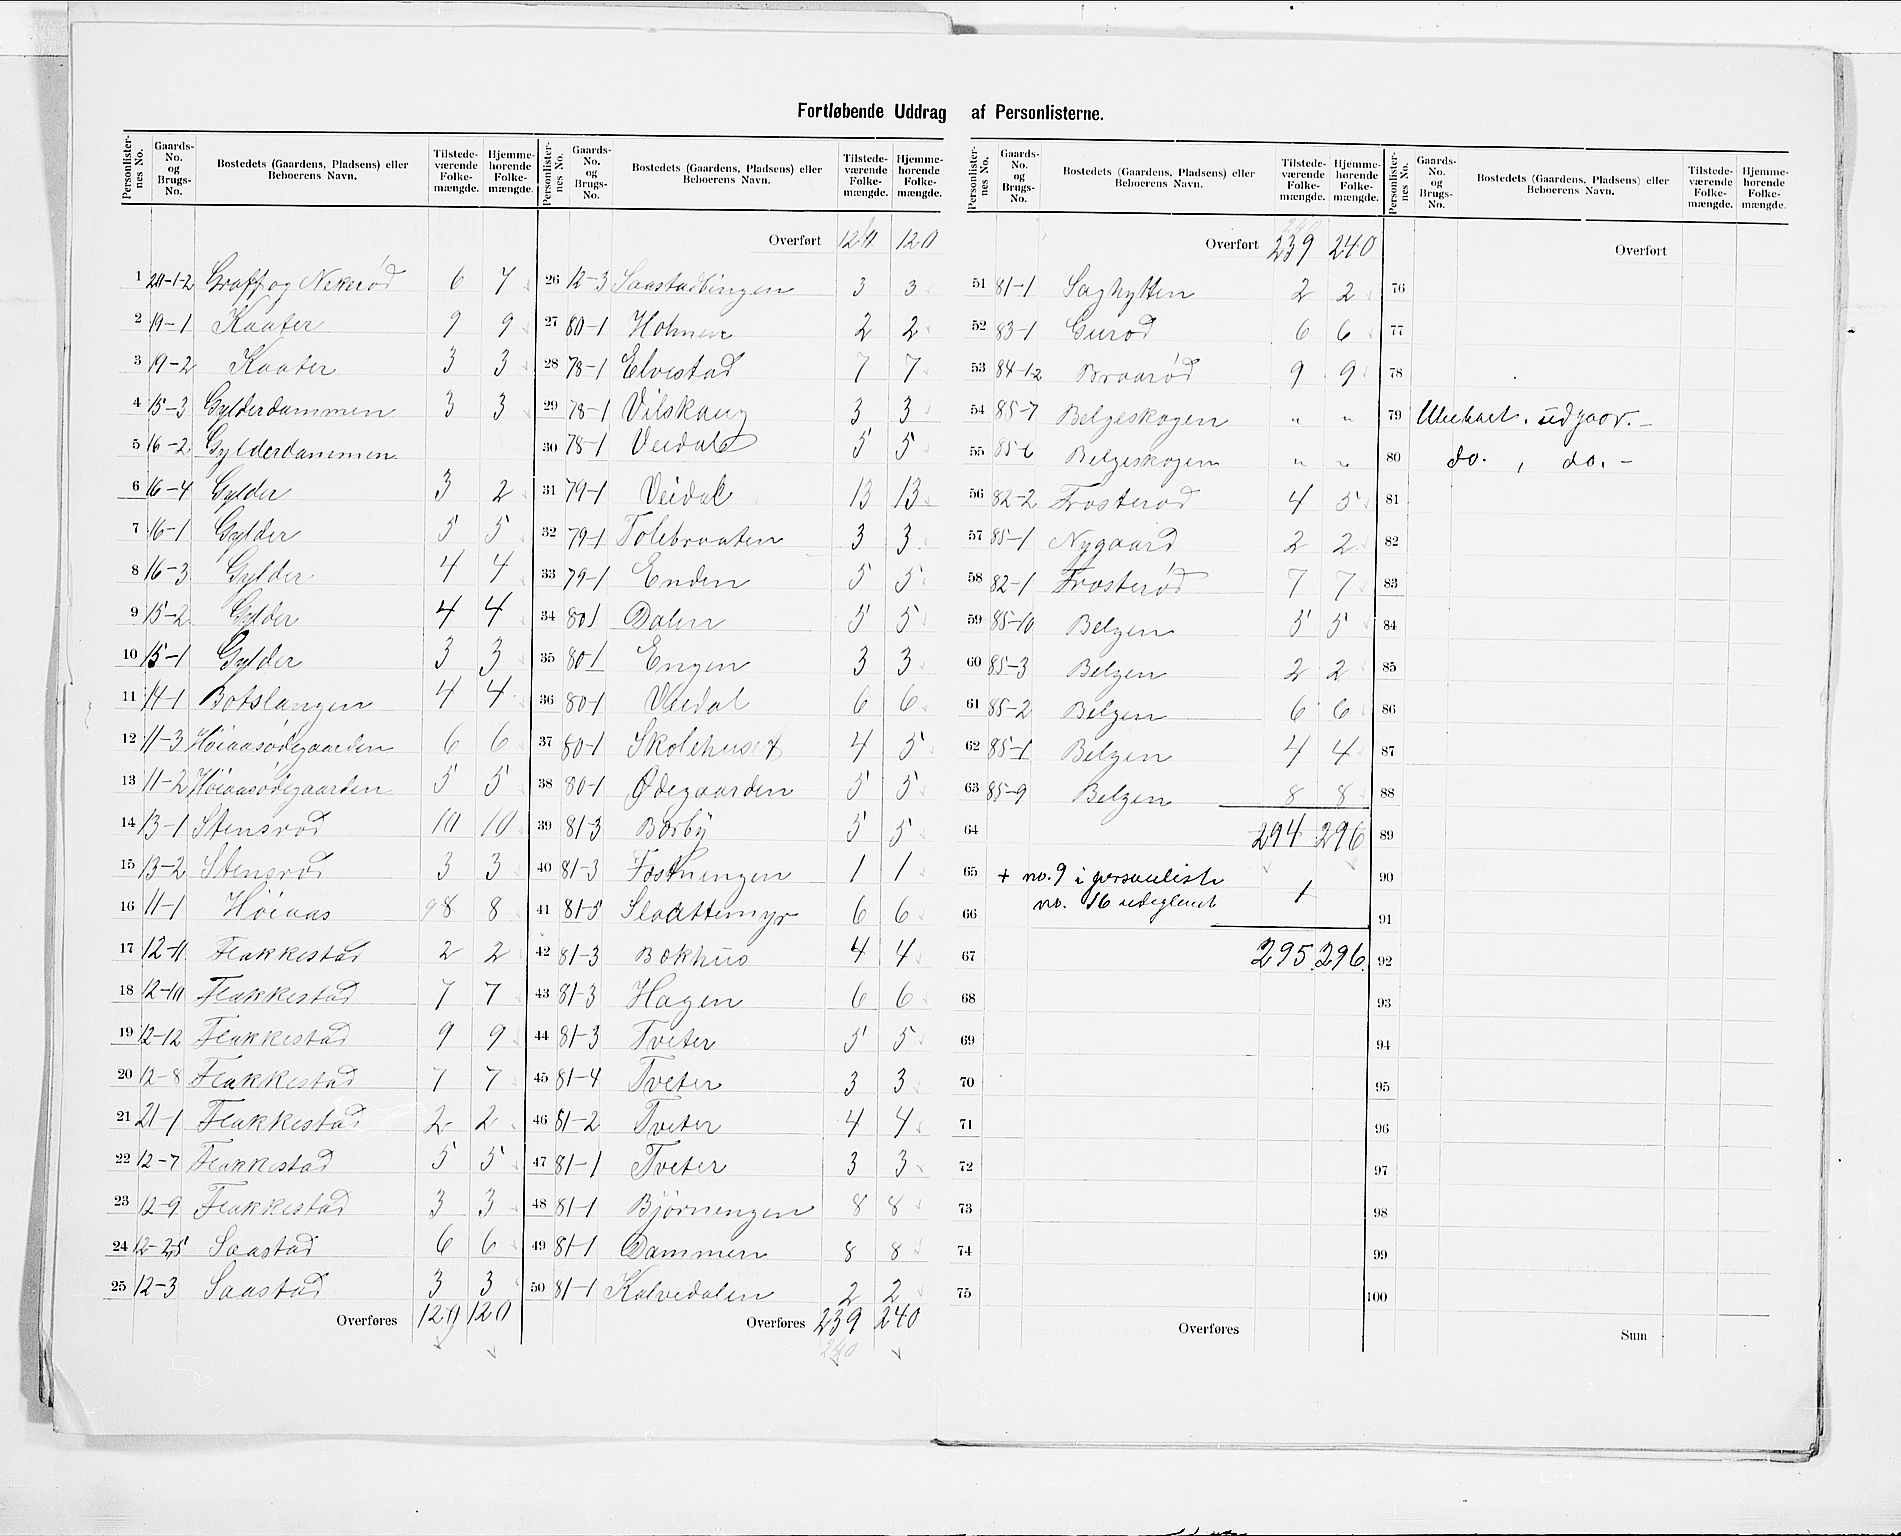 Fortløbende Uddrag af Personlisterne.
Personlister-nes No. Gaards-No. og Brugs-No. Bostedets (Gaardens, Pladsens) eller Beboerens Navn. Tilstede-værende Folke-mængde. Hjemme-hørende Folke-mængde.
1 20-1-2 Graff og Nekerød 6 7
2 19-1 Kaater 9 9
3 19-2 Kaater 3 3
4 15-3 Gylderdammen 3 3
5 16-2 Gylderdammen
6 16-4 Gylder 3 2
7 16-1 Gylder 5 5
8 16-3 Gylder 4 4
9 15-2 Gylder 4 4
10 15-1 Gylder 3 3
11 14-1 Botslangen 4 4
12 11-3 Höiaasødegaarden 6 6
13 11-2 Höiaasødegaarden 5 5
14 13-1 Stensrød 10 10
15 13-2 Stensrød 3 3
16 11-1 Höiaas 98 8
17 12-11 Flakkestad 2 2
18 12-10 Flakkestad 7 7
19 12-12 Flakkestad 9 9
20 12-8 Flakkestad 7 7
21 21-1 Flakkestad 2 2
22 12-7 Flakkestad 5 5
23 12-9 Flakkestad 3 3
24 12-2,5 Saastad 6 6
25 12-3 Saastad 3 3
Overføres 120 120
Personlister-nes No. Gaards-No. og Brugs-No. Bostedets (Gaardens, Pladsens) eller Beboerens Navn. Tilstede-værende Folke-mængde. Hjemme-hørende Folke-mængde.
Overført 120 120
26 12-3 Saastadbingen 3 3
27 80-1 Holmen 2 2
28 78-1 Elvestad 7 7
29 78-1 Vilskaug 3 3
30 78-1 Veidal 5 5
31 79-1 Veidal 13 13
32 79-1 Tolebraaten 3 3
33 79-1 Enden 5 5
34 80 1 Dalen 5 5
35 80-1 Engen 3 3
36 80-1 Veidal 6 6
37 80-1 Skolehuset 4 5
38 80-1 Ødegaarden 5 5
39 81-3 Borby 5 5
40 81-3 Fostningen 1 1
41 81-5 Slaattemyr 6 6
42 81-3 Bakhus 4 4
43 81-3 Hagen 6 6
44 81-3 Tveter 5 5
45 81-4 Tveter 3 3
46 81-2 Tveter 4 4
47 81-1 Tveter 3 3
48 81-1 Bjørningen 8 8
49 81-1 Dammen 8 8
50 81-1 Kalvedalen 2 2
Overføres 239 240
240
Personlister-nes No. Gaards-No. og Brugs-No. Bostedets (Gaardens, Pladsens) eller Beboerens Navn. Tilstede-værende Folke-mængde. Hjemme-hørende Folke-mængde.
Overført 239 240
51 81-1 Saghytten 2 2
52 83-1 Gurød 6 6
53 84-1,2 Braarød 9 9
54 85-7 Belgeskogen " "
55 85-6 Belgeskogen " "
56 82-2 Frosterød 4 5
57 85-1 Nygaard 2 2
58 82-1 Frosterød 7 7
59 85-10 Belgen 5 5
60 85-3 Belgen 2 2
61 85-2 Belgen 6 6
62 85-1 Belgen 4 4
63 85-9 Belgen 8 8
64 294 296
65 + no. 9 i personliste
66 no. 16 udeglemt 1
67 295 296
68
69
70
71
72
73
74
75
Overføres
Personlister-nes No. Gaards-No. og Brugs-No. Bostedets (Gaardens, Pladsens) eller Beboerens Navn. Tilstede-værende Folke-mængde. Hjemme-hørende Folke-mængde.
Overført
76
77
78
79 Ubeboet, udgaar. –
80 do. , do. –
81
82
83
84
85
86
87
88
89
90
91
92
93
94
95
96
97
98
99
100
Sum